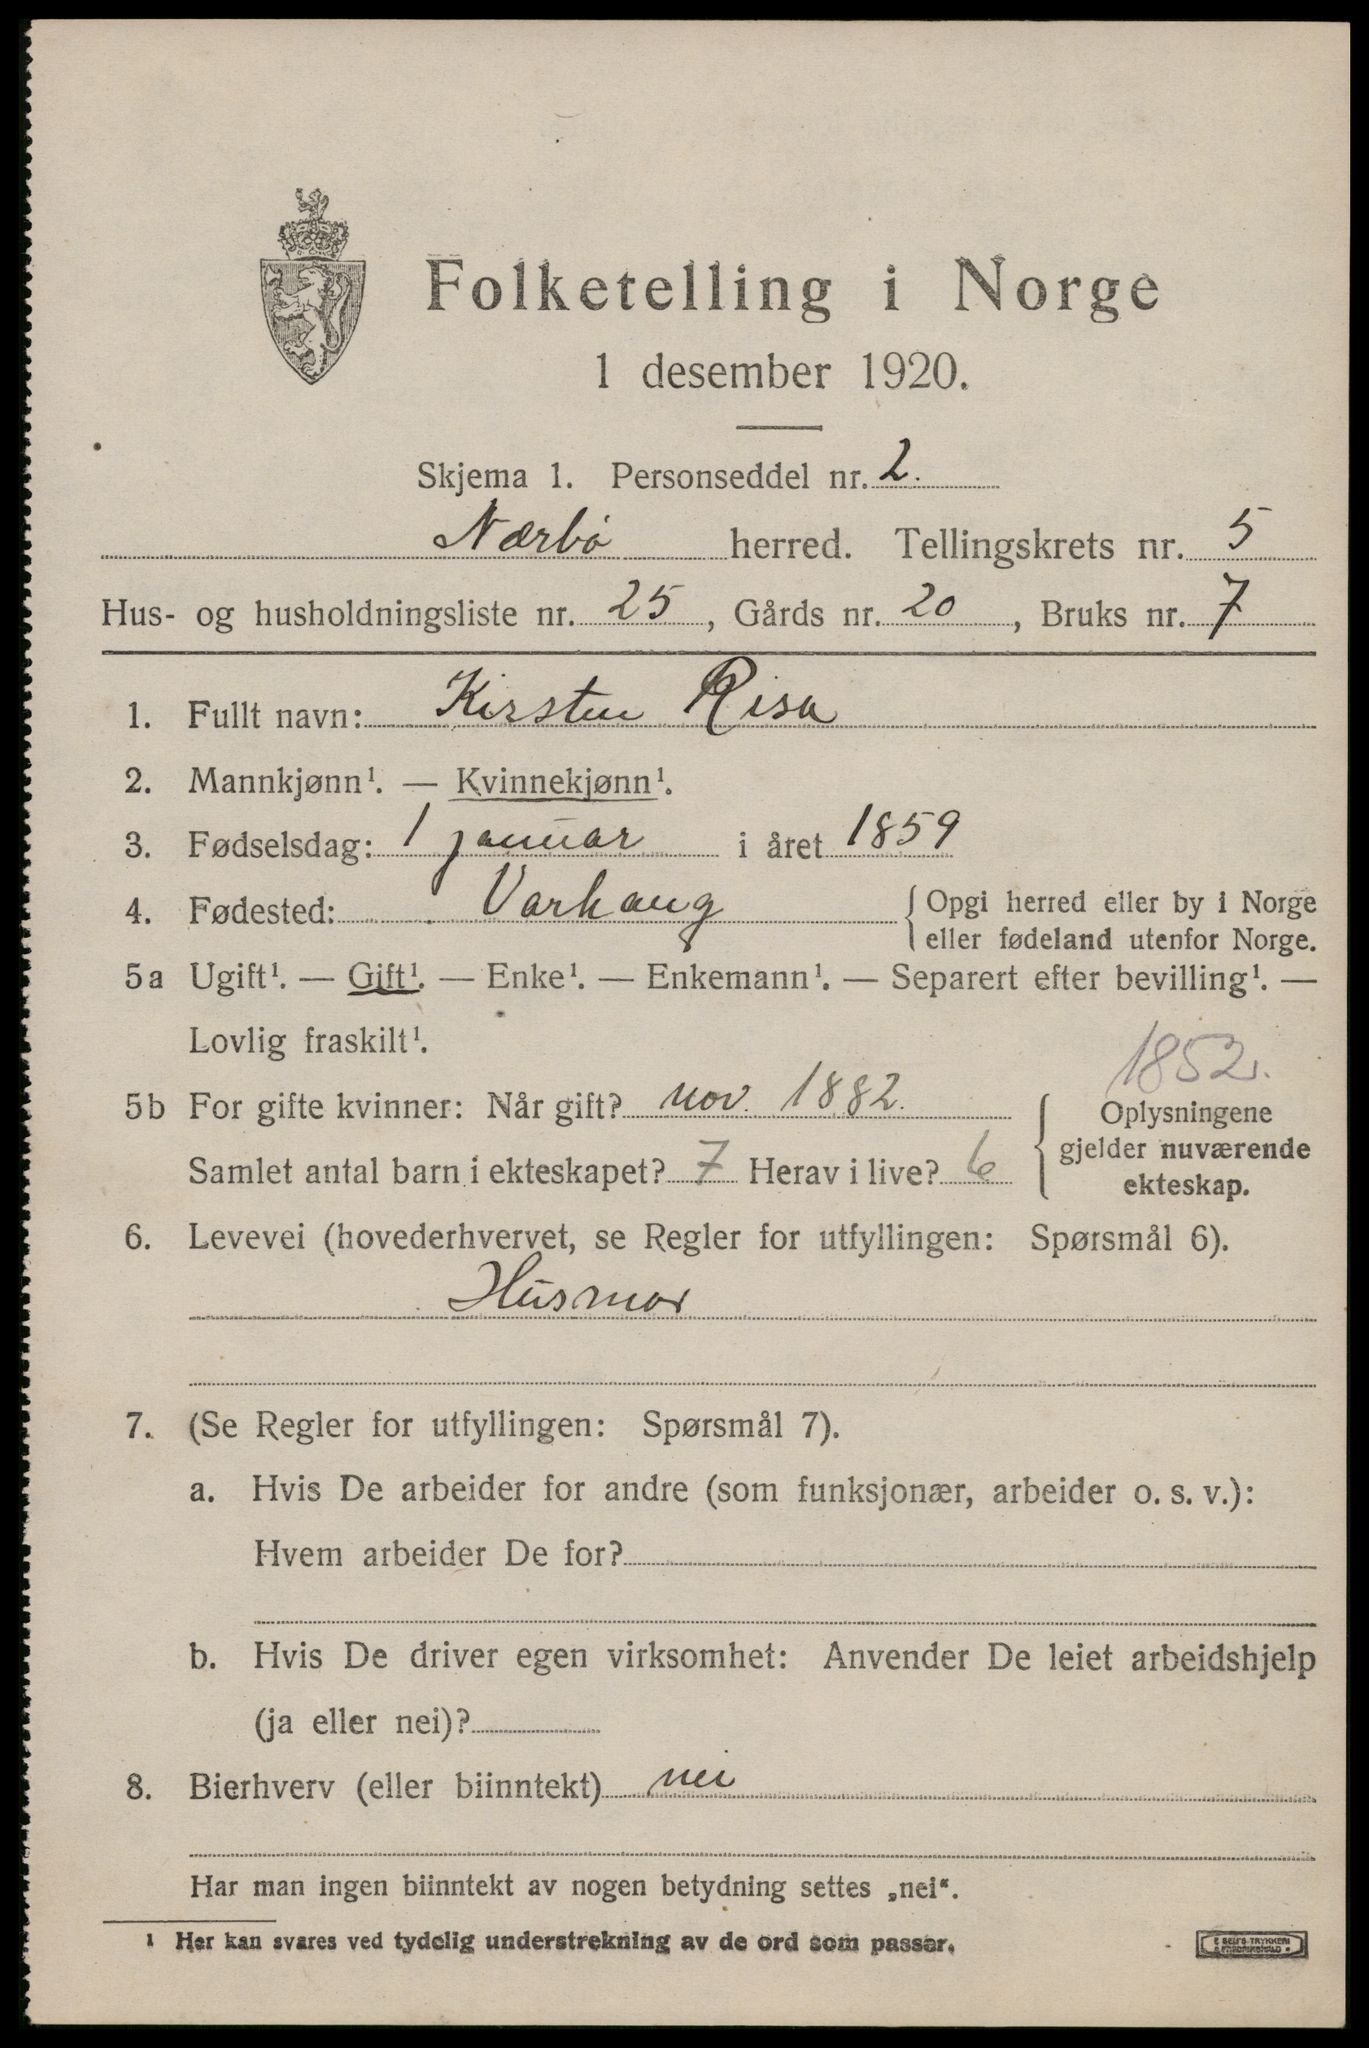 Folketelling i Norge
1 desember 1920.
Skjema 1. Personseddel nr. 2.
Nærbö herred. Tellingskrets nr. 5
Hus- og husholdningsliste nr. 25, Gårds nr. 20, Bruks nr. 7
1. Fullt navn: Kirsten Risa
2. Mannkjønn¹. — Kvinnekjønn¹.
3. Fødselsdag: 1 januar i året 1859
4. Fødested: Varhaug { Opgi herred eller by i Norge
eller fødeland utenfor Norge.
5a Ugift¹. — Gift¹. — Enke¹. — Enkemann¹. — Separert efter bevilling¹. —
Lovlig fraskilt¹.
1852.
5b For gifte kvinner: Når gift? nov. 1882.
Samlet antal barn i ekteskapet? 7 Herav i live? 6
{ Oplysningene
gjelder nuværende
ekteskap.
6. Levevei (hovederhvervet, se Regler for utfyllingen: Spørsmål 6).
Husmor
7. (Se Regler for utfyllingen: Spørsmål 7).
a. Hvis De arbeider for andre (som funksjonær, arbeider o. s. v.):
Hvem arbeider De for?
b. Hvis De driver egen virksomhet: Anvender De leiet arbeidshjelp
(ja eller nei)?
8. Bierhverv (eller biinntekt) nei
Har man ingen biinntekt av nogen betydning settes „nei“.
¹ Her kan svares ved tydelig understrekning av de ord som passer.